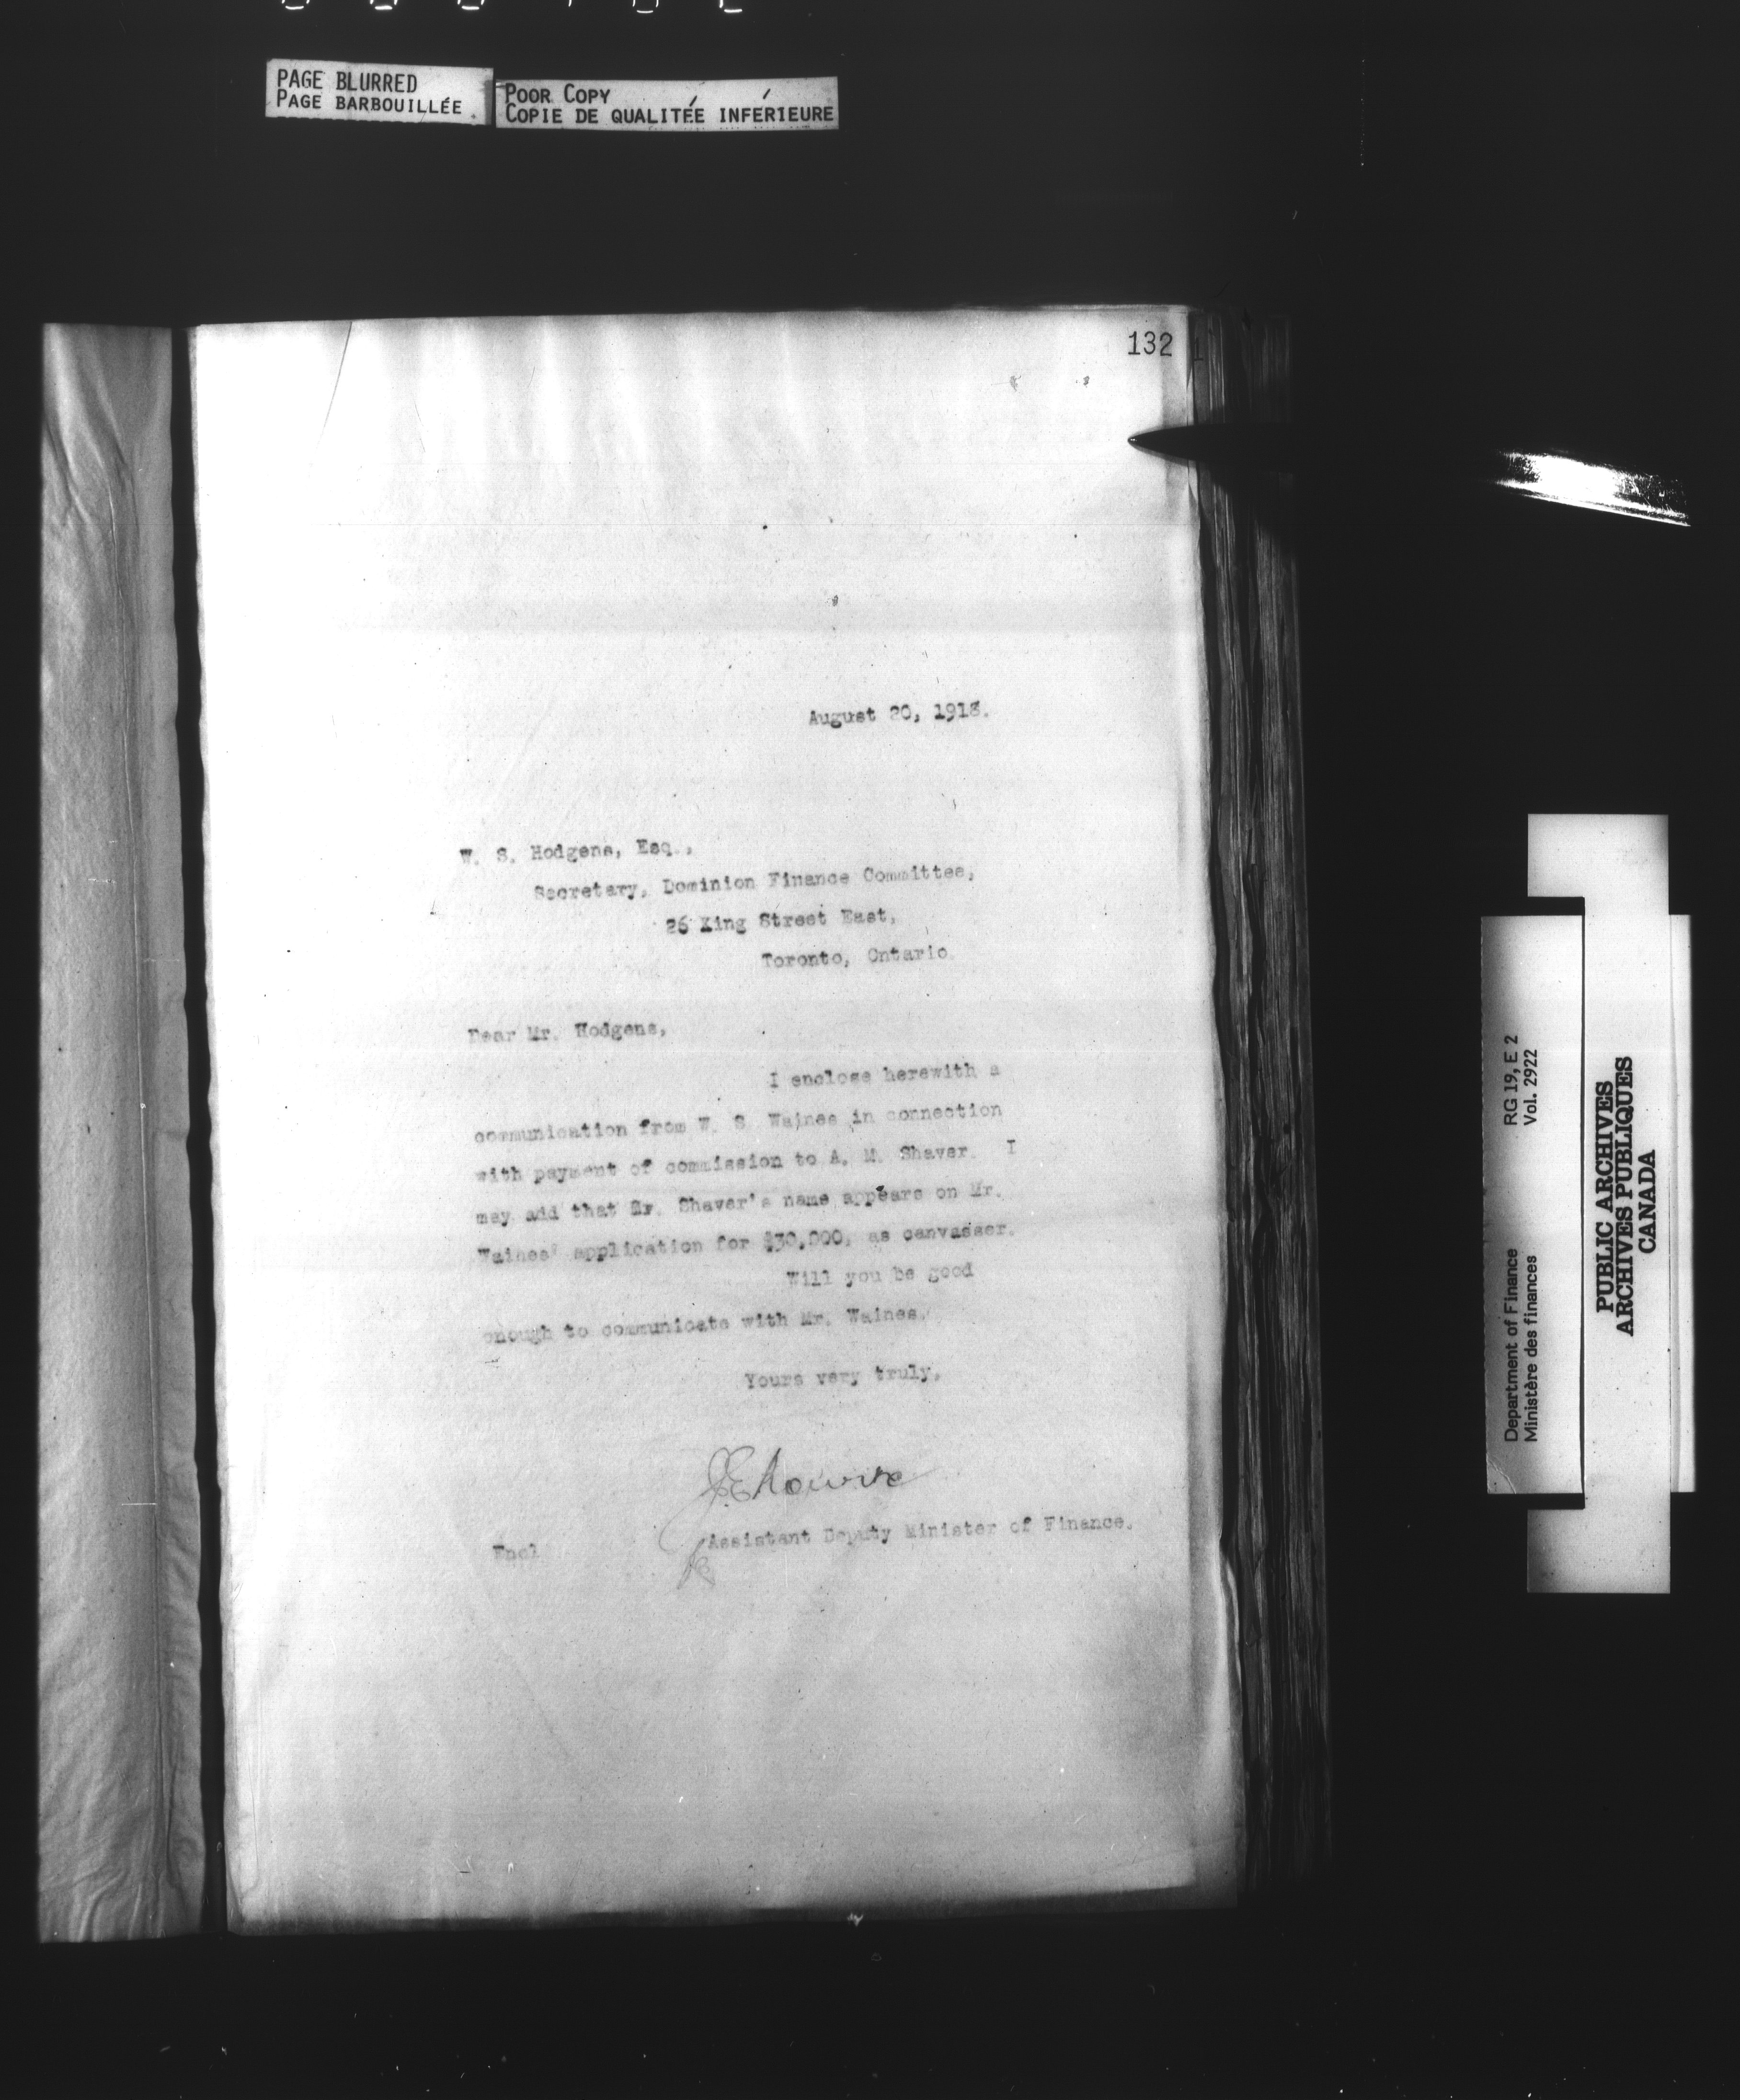 PAGE BLURRED
PAGE BARBOUILLÉE
POOR COPY
COPIE DE QUALITÉE INFÉRIEURE
132
August 20, 1918.
W. S. Hodgens, Esq.,
Secretary, Dominion Finance Committee,
26 King Street East,
Toronto, Ontario.
Dear Mr. Hodgens,
I enclose herewith a
communication from W. S. Waines in connection
with payment of commission to A. M. Shaver. I
may add that Mr. Shaver's name appears on Mr.
Waines' application for $30,000, as canvasser.
Will you be good
enough to communicate with Mr. Waines.
Yours very truly,
Assistant Deputy Minister of Finance.
Encl
Department of Finance RG 19, E 2
Ministère des finances Vol. 2922
PUBLIC ARCHIVES
ARCHIVES PUBLIQUES
CANADA